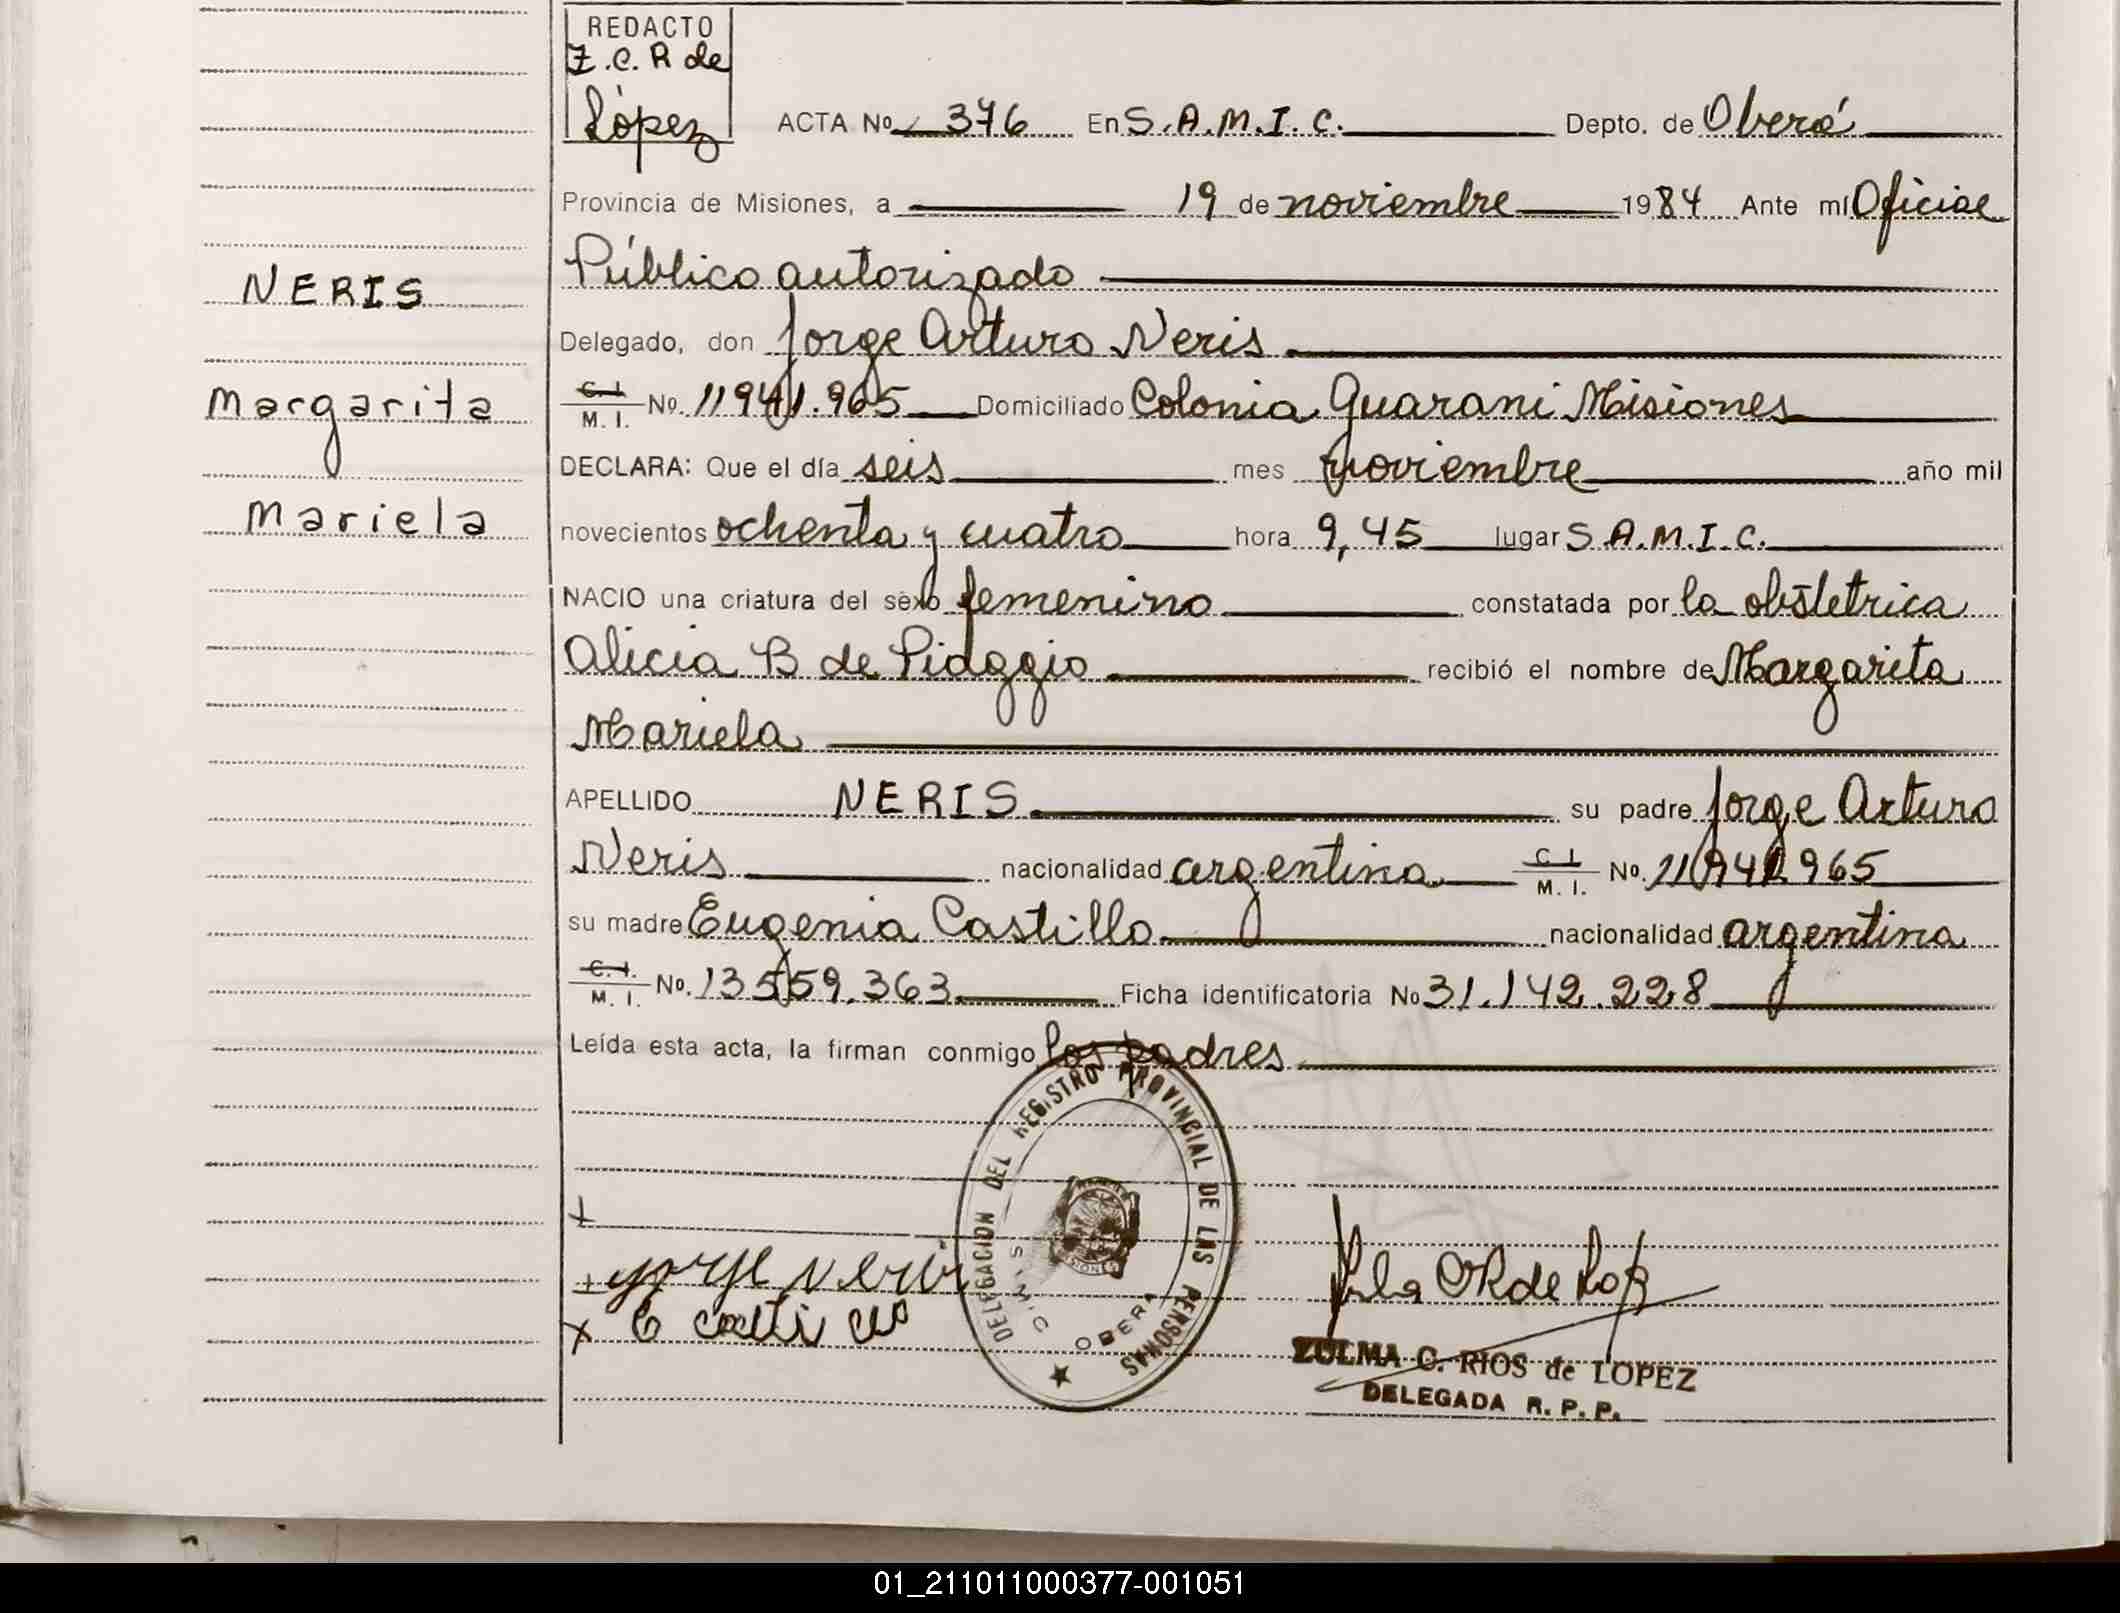 REDACTO
Z.C.R de
López
ACTA No 376 En S.A.M.I.C. Depto. de Oberá
Provincia de Misiones, a 19 de noviembre 1984 Ante mí Oficial
Público autorizado
Delegado, don Jorge Arturo Neris
C.I. M.I. No. 11941.965 Domiciliado Colonia Guarani Misiones
DECLARA: Que el día seis mes noviembre año mil
novecientos ochenta y cuatro hora 9,45 lugar S.A.M.I.C.
NACIO una criatura del sexo femenino constatada por la obstetrica
Alicia B de Piaggio recibió el nombre de Margarita
Mariela
APELLIDO NERIS su padre Jorge Arturo
Neris nacionalidad argentina C.I. M.I. No. 11941.965
su madre Eugenia Castillo nacionalidad argentina
C.I. M.I. No. 13559.363 Ficha identificatoria No 31.142.228
Leída esta acta, la firman conmigo los padres
NERIS
Margarita
Mariela
DELEGACION DEL REGISTRO PROVINCIAL DE LAS PERSONAS
S.M.I.C OBERA
ZULMA C. RIOS de LOPEZ
DELEGADA R.P.P.
01_211011000377-001051